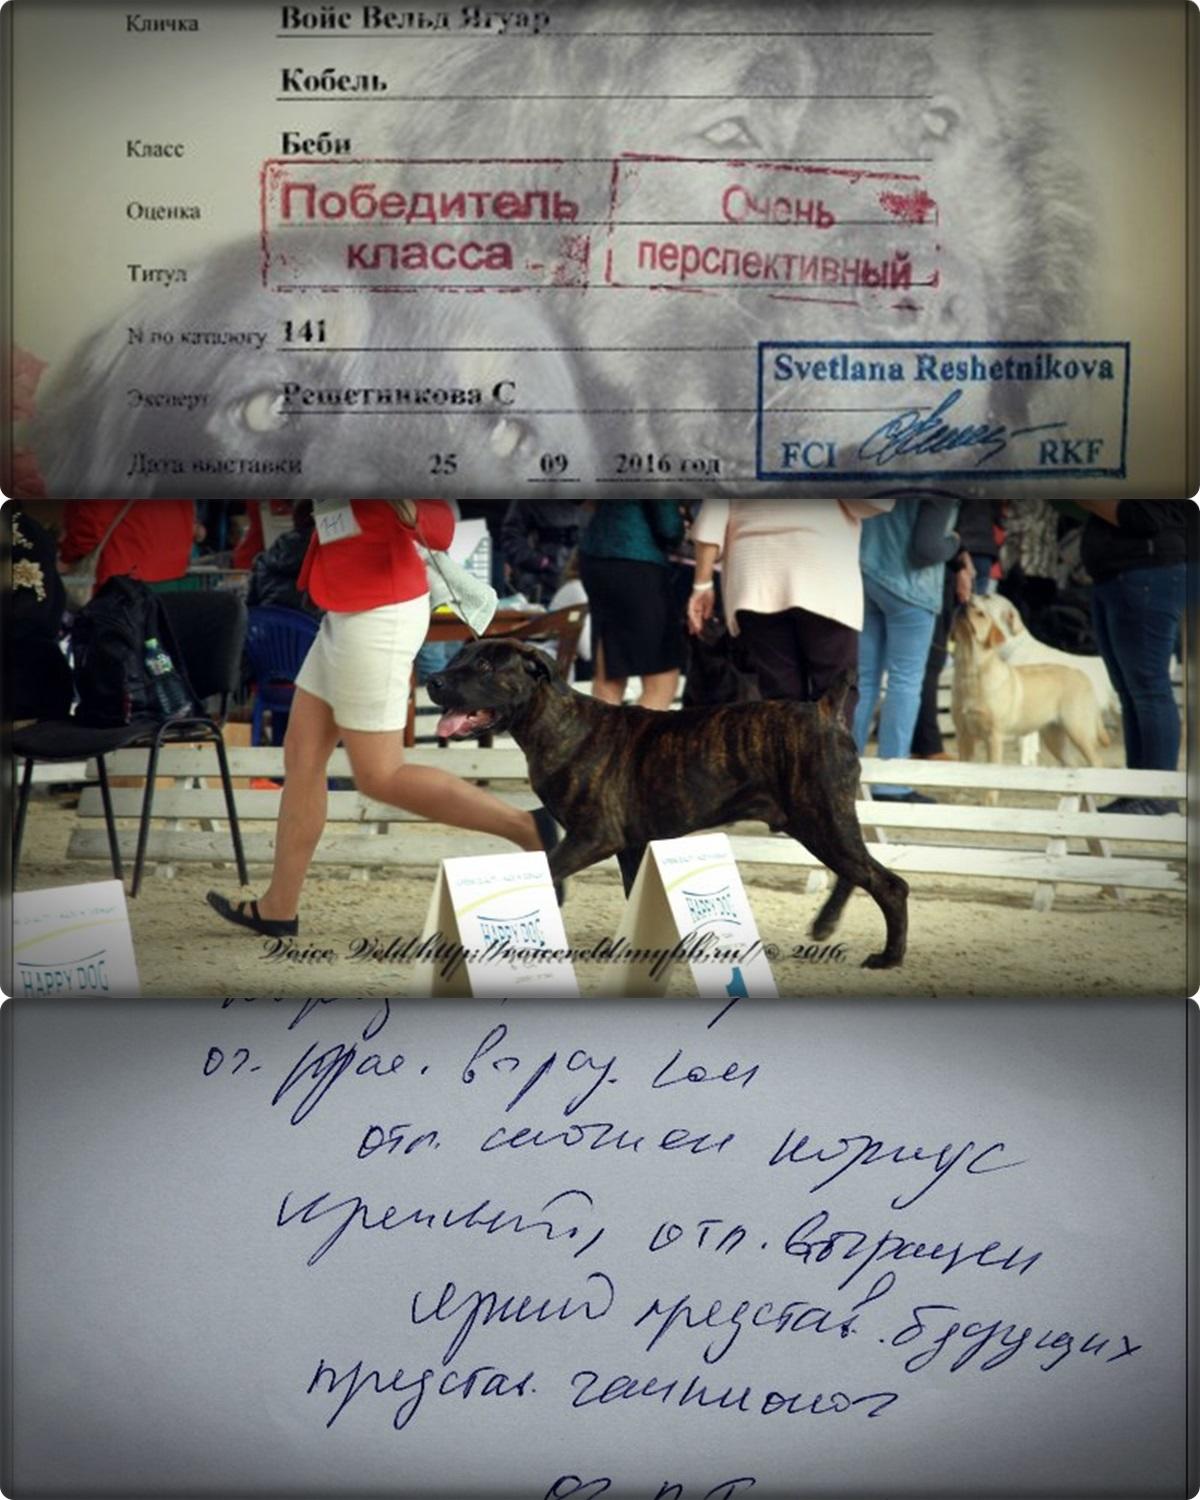 Кличка Войс Вельд Ягуар
Кобель
Класс Беби
Оценка Победитель Очень
класса перспективный
Титул
N по каталогу 141
Svetlana Reshetnikova
Эксперт Решетникова С
FCI RKF
Дата выставки 25 09 2016 год
141
HAPPY DOG
HAPPY DOG
HAPPY DOG
1
Voice Veld/http://voiceveld.mybb.ru/ © 2016
ог.
отл. сложен корпус
крепкий, отл. выращен
яркий представ. будущих
представ. чемпионов